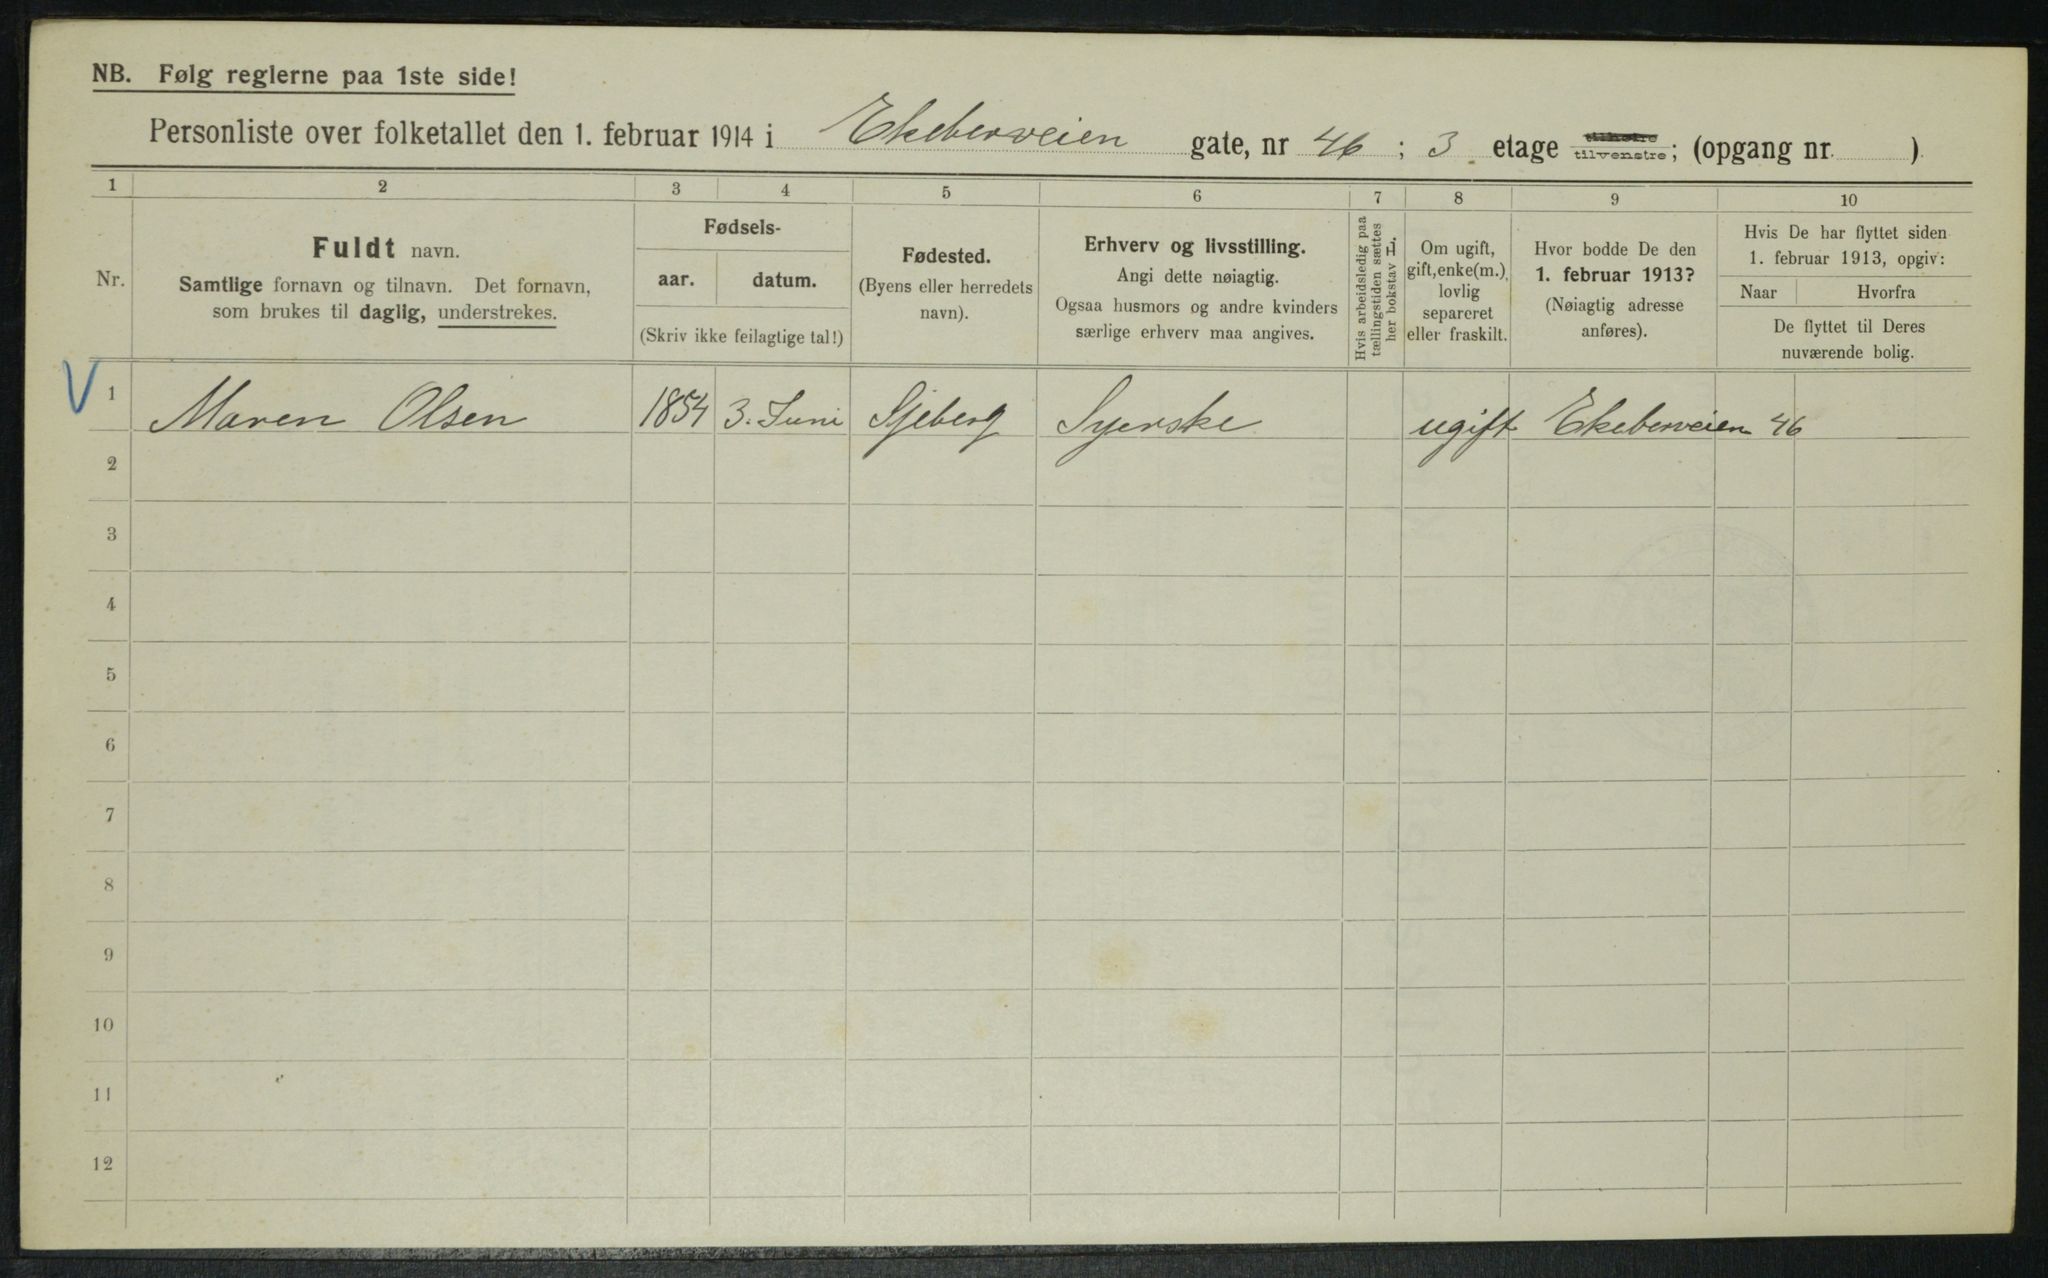 NB. Følg reglerne paa 1ste side!
Personliste over folketallet den 1. februar 1914 i Ekeberveien gate, nr 46 ; 3 etage tilhøire tilvenstre; (opgang nr. )
1 2 3 4 5 6 7 8 9 10
Nr.
Fuldt navn.
Samtlige fornavn og tilnavn. Det fornavn,
som brukes til daglig, understrekes.
Fødsels-
aar. datum.
(Skriv ikke feilagtige tal!)
Fødested.
(Byens eller herredets
navn).
Erhverv og livsstilling.
Angi dette nøiagtig.
Ogsaa husmors og andre kvinders
særlige erhverv maa angives.
Hvis arbeidsledig paa
tællingstiden sættes
her bokstav H.
Om ugift,
gift, enke(m.)
lovlig
separeret
eller fraskilt.
Hvor bodde De den
1. februar 1913?
(Nøiagtig adresse
anføres).
Hvis De har flyttet siden
1. februar 1913, opgiv:
Naar Hvorfra
De flyttet til Deres
nuværende bolig.
V 1 Maren Olsen 1854 3. Juni Sjeberg Syerske ugift Ekeberveien 46
2
3
4
5
6
7
8
9
10
11
12